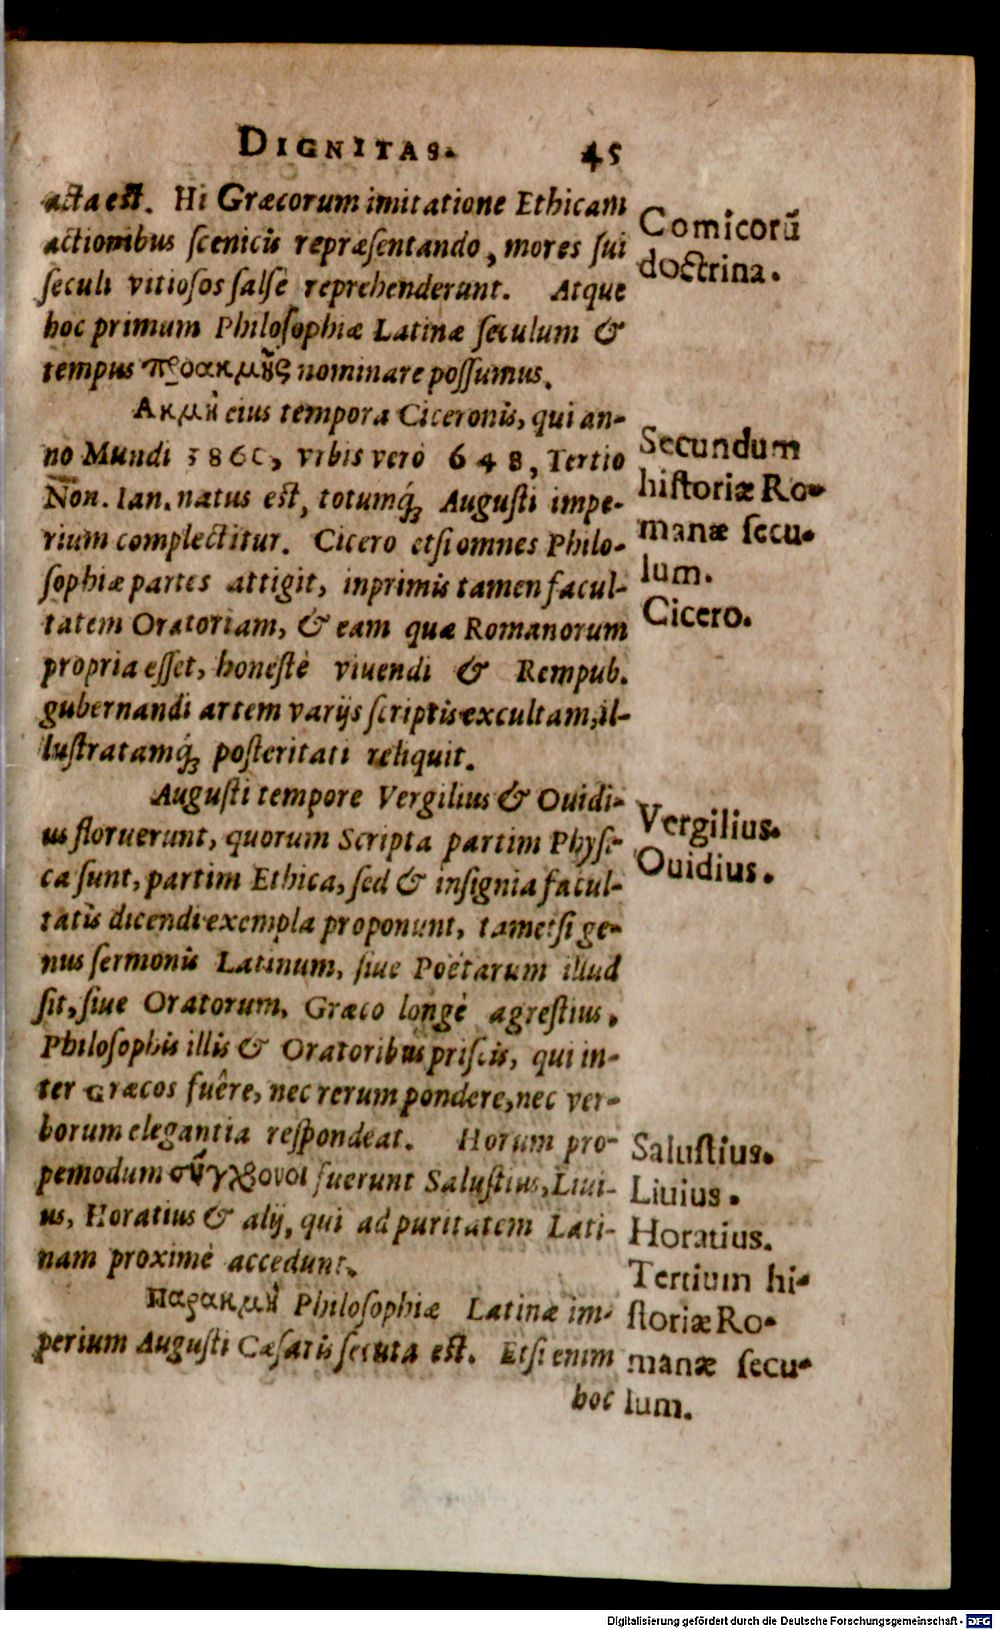 DIGNITAS. 45
acta est. Hi Græcorum imitatione Ethicam
actionibus scenicis repræsentando, mores sui
seculi vitiosos salsè reprehenderunt. Atque
hoc primum Philosophiæ Latinæ seculum &
tempus προακμῆς nominare possumus.
Comicorũ
doctrina.
Ακμὴ eius tempora Ciceronis, qui an-
no Mundi vrbis verò 648, Tertio
Non. Ian. natus est, totumq́; Augusti impe-
rium complectitur. Cicero etsi omnes Philo-
sophiæ partes attigit, inprimis tamen facul-
tatem Oratoriam, & eam quæ Romanorum
propria esset, honestè viuendi & Rempub.
gubernandi artem varijs scriptis excultam, il-
lustratamq́; posteritati reliquit.
Secundum
historiæ Ro-
manæ secu-
lum.
Cicero.
Augusti tempore Vergilius & Ouidi-
us floruerunt, quorum Scripta partim Physi-
ca sunt, partim Ethica, sed & insignia facul-
tatis dicendi exempla proponunt, tametsi ge-
nus sermonis Latinum, siue Poëtarum illud
sit, siue Oratorum, Græco longè agrestius,
Philosophis illis & Oratoribus priscis, qui in-
ter Græcos fuêre, nec rerum pondere, nec ver-
borum elegantia respondeat. Horum pro-
pemodum σύγχρονοι fuerunt Salustius, Liui-
us, Horatius & alij, qui ad puritatem Lati-
nam proximè accedunt.
Vergilius.
Ouidius.
Salustius.
Liuius.
Horatius.
Παρακμὴ Philosophiæ Latinæ im-
perium Augusti Cæsaris secuta est. Etsi enim
hoc
Tertium hi-
storiæ Ro-
manæ secu-
lum.
Digitalisierung gefördert durch die Deutsche Forschungsgemeinschaft - DFG